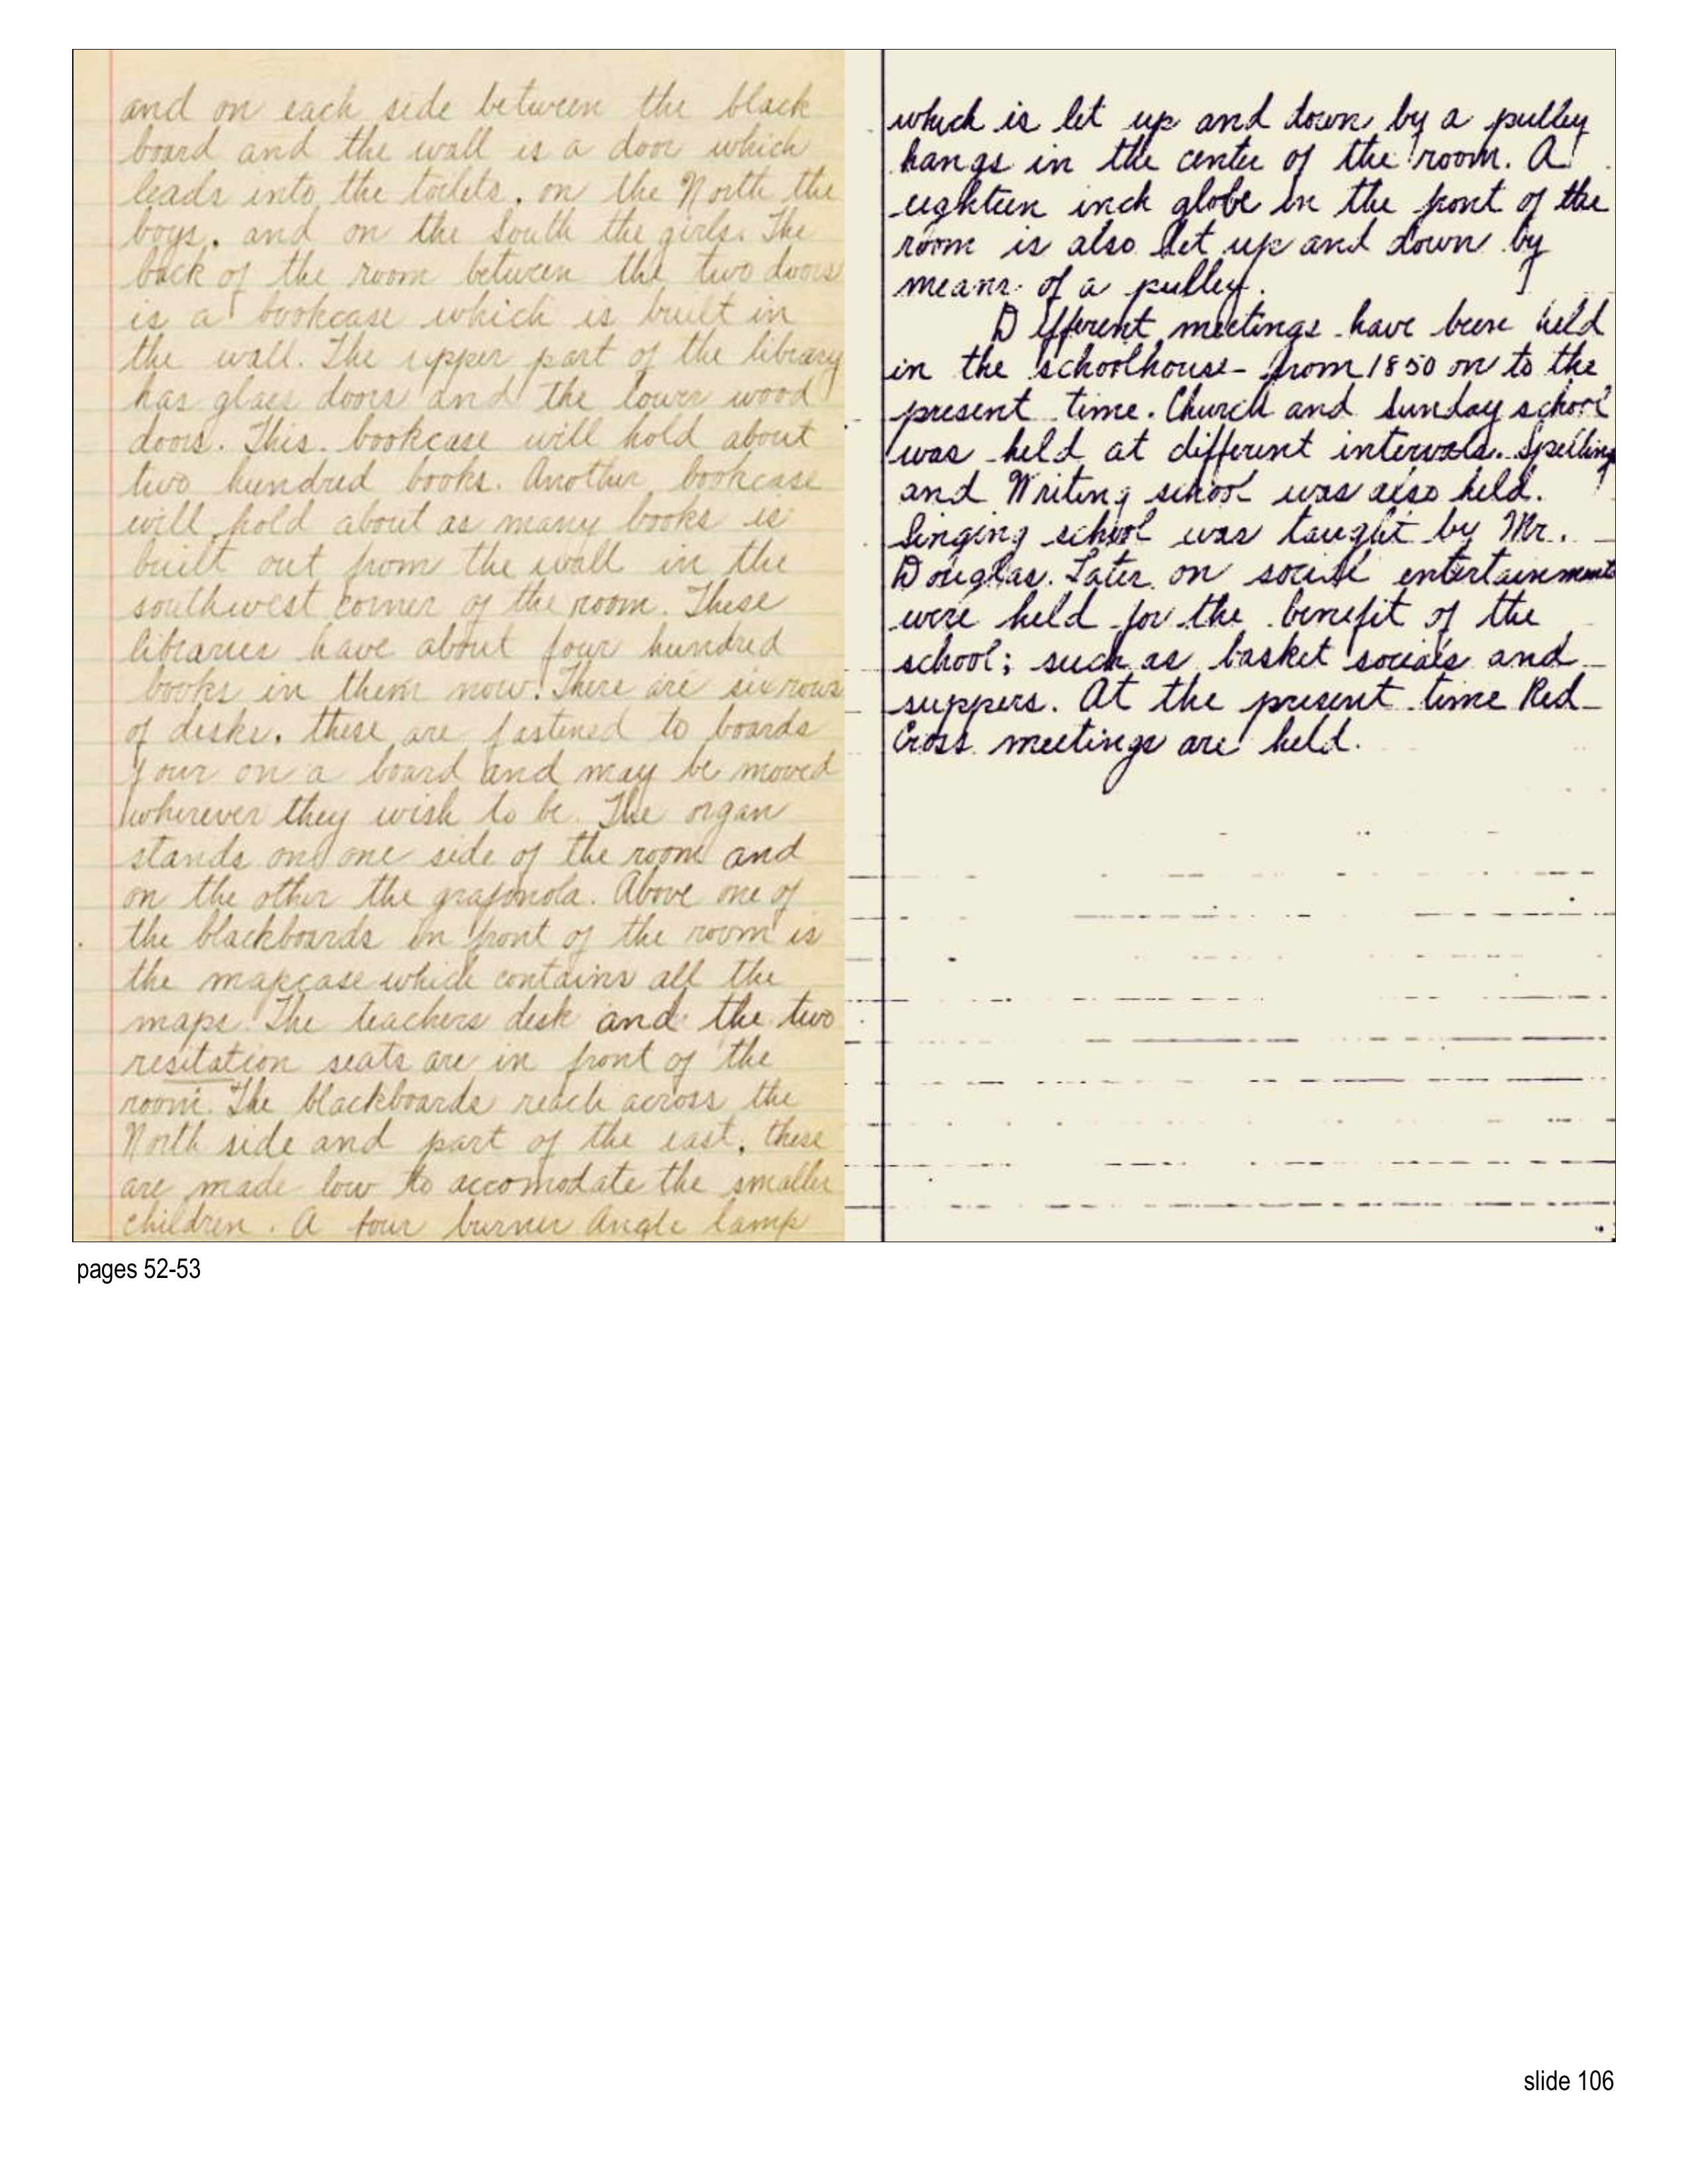 and on each side between the black
board and the wall is a door which
leads into the toilets. on the North the
boys. and on the South the girls. The
back of the room between the two doors
is a bookcase which is built in
the wall. The upper part of the library
has glass doors and the lower wood
doors. This bookcase will hold about
two hundred books. Another bookcase
will hold about as many books is
built out from the wall in the
southwest corner of the room. These
libraries have about four hundred
books in them now. There are six rows
of desks. these are fastened to boards
four on a board and may be moved
wherever they wish to be. The organ
stands on one side of the room and
on the other the grafonola. Above one of
the blackboards in front of the room is
the mapcase which contains all the
maps. The teachers desk and the two
resitation seats are in front of the
room. The blackboards reach across the
North side and part of the east. these
are made low to accomodate the smaller
children. A four burner Angle lamp
which is let up and down by a pulley
hangs in the center of the room. A
eighteen inch globe in the front of the
room is also let up and down by
means of a pulley.
Different meetings have been held
in the schoolhouse from 1850 on to the
present time. Church and Sunday school
was held at different intervals. Spelling
and Writing school was also held.
Singing school was taught by Mr.
Douglas. Later on social entertainments
were held for the benefit of the
school; such as basket socials and
suppers. At the present time Red
Cross meetings are held.
pages 52-53
slide 106